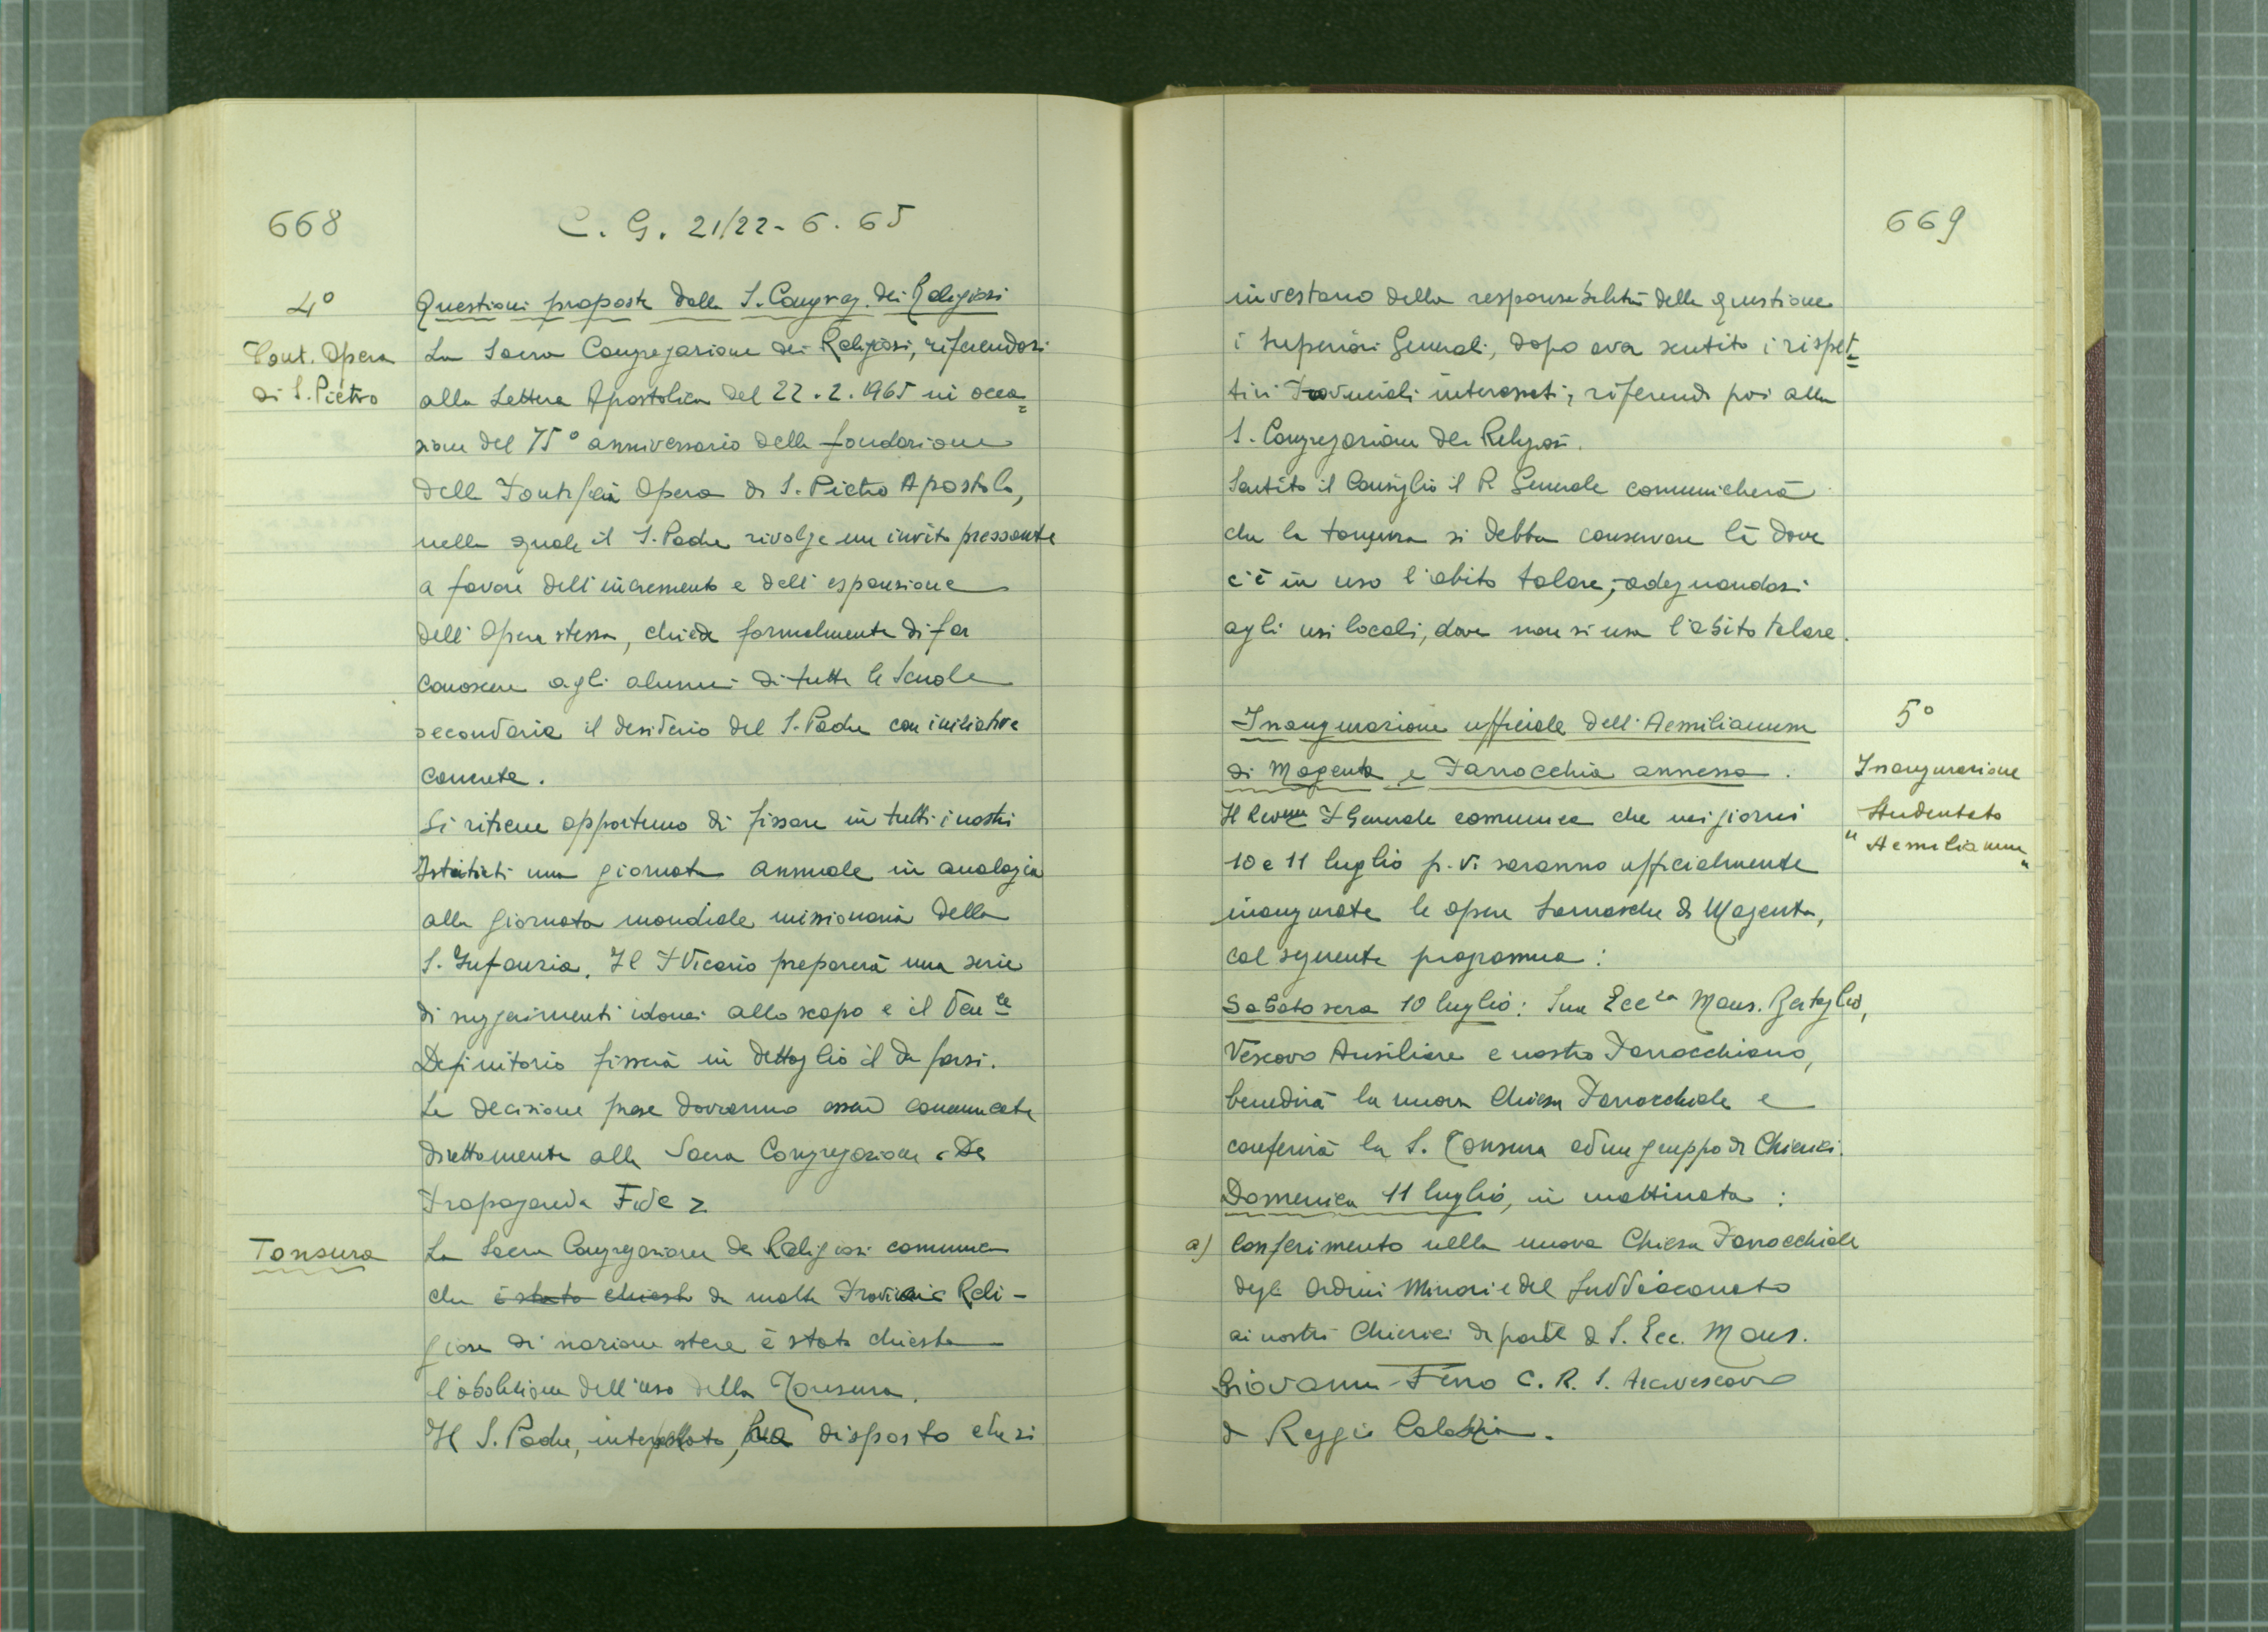 668
C. G. 21/22-6.65
4°
Pont. Opera
di S. Pietro
Questioni proposte dalla S. Congreg. dei Religiosi
La Sacra Congregazione dei Religiosi, riferendosi
alla Lettera Apostolica del 22.2.1965 in occa=
sione del 75° anniversario della fondazione
della Pontificia Opera di S. Pietro Apostolo,
nella quale il S. Padre rivolge un invito pressante
a favore dell'incremento e dell'espansione
dell'Opera stessa, chiede formalmente di far
conoscere agli alunni di tutte le Scuole
secondarie il desiderio del S. Padre con iniziative
concrete.
Si ritiene opportuno di fissare in tutti i nostri
Istituti una giornata annuale in analogia
alla giornata mondiale missionaria della
S. Infanzia. Il P Vicario preparerà una serie
di suggerimenti idonei allo scopo e il Ven le
Definitorio fisserà in dettaglio il da farsi.
Le decisioni prese dovranno essere comunicate
direttamente alla Sacra Congregazione "De
Propaganda Fide"
Tonsura
La Sacra Congregazione dei Religiosi comunica
che è stato chiesto da molte Provincie Reli-
giose di nazione estere è stata chiesta
l'abolizione dell'uso della Tonsura.
Il S. Padre, interpellato, ha disposto che si
669
investano della responsabilità della questione
i Superiori Generali, dopo aver sentito i rispet=
tivi Provinciali interessati, riferendo poi alla
S. Congregazione dei Religiosi.
Sentito il Consiglio il P. Generale comunicherà
che la tonsura si debba conservare là dove
c'è in uso l'abito talare, adeguandosi
agli usi locali, dove non si usa l'abito talare.
5°
Inaugurazione
Studentato
"Aemilianum"
Inaugurazione ufficiale dell'Aemilianum
di Magenta e Parrocchia annessa.
Il Rev.mo P Generale comunica che nei giorni
10 e 11 luglio p.v. saranno ufficialmente
inaugurate le opere Somasche di Magenta,
col seguente programma:
Sabato sera 10 luglio: Sua Ecc.za Mons. Bertoglio,
Vescovo Ausiliare e nostro Parrocchiano,
benedirà la nuova Chiesa Parrocchiale e
conferirà la S. Tonsura ad un gruppo di Chierici.
Domenica 11 luglio, in mattinata:
a) Conferimento nella nuova Chiesa Parrocchiale
degli Ordini Minori e del Suddiaconato
ai nostri Chierici da parte di S. Ecc. Mons.
Giovanni Ferro C. R. S. Arcivescovo
di Reggio Calabria.